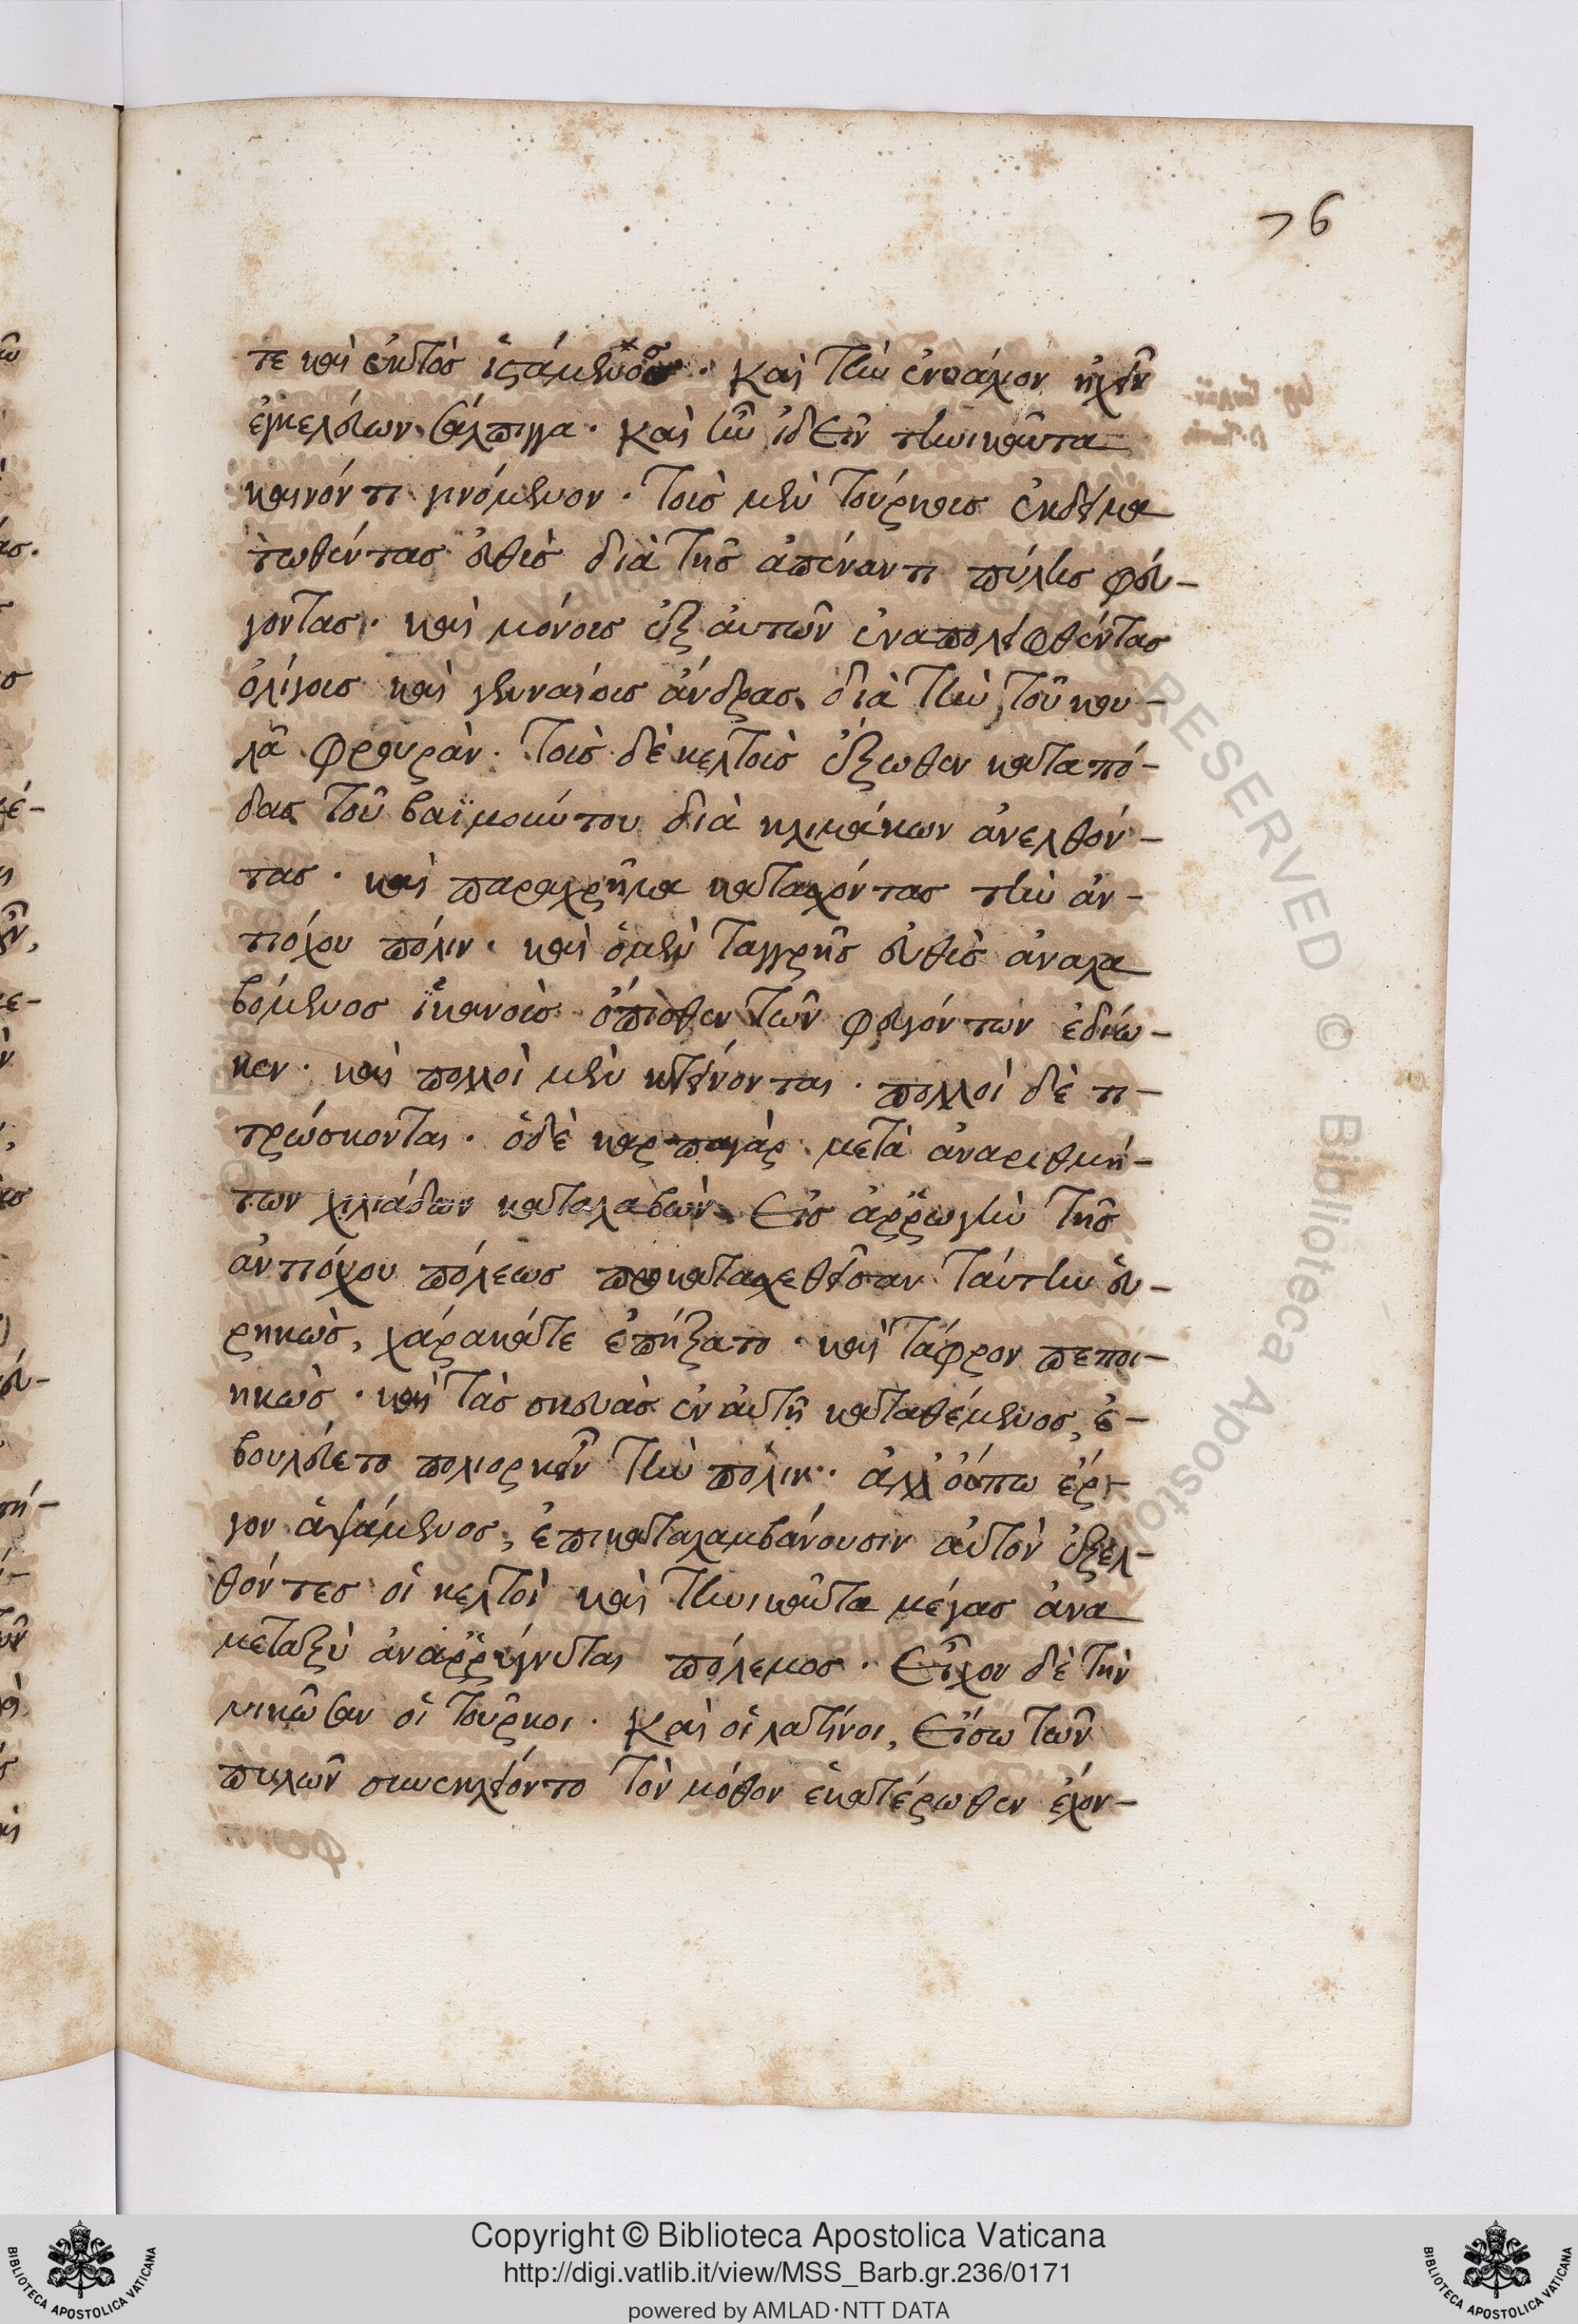 76
τε καὶ ἐκτὸς ἱστάμενος· Καὶ τὴν ἐνυάλιον ἠχεῖν
ἐγκελεύων σάλπιγγα· καὶ ἦν ἰδεῖν τηνικαῦτα
καινόν τι γινόμενον· Τοὺς μὲν Τούρκους ἐκδειμα
τωθέντας εὐθὺς διὰ τῆς ἀπέναντι πύλης φεύ-
γοντας· καὶ μόνους ἐξ αὐτῶν ἐναπολειφθέντας
ὀλίγους καὶ γενναίους ἄνδρας διὰ τὴν τοῦ κου-
λᾶ φρουράν· Τοὺς δὲ κελτοὺς ἔξωθεν κατα πό-
δας τοῦ βαϊμούντου διὰ κλιμάκων ἀνελθόν-
τας· καὶ παραχρῆμα κατασχόντας τὴν ἀν-
τιόχου πόλιν· καὶ ὁ μὲν Ταγγρῆς εὐθὺς ἀναλα
βόμενος ἱκανοὺς ὄπισθεν τῶν φευγόντων ἐδίω-
κεν· καὶ πολλοὶ μὲν κτείνονται· πολλοὶ δὲ τι-
τρώσκονται· ὁ δὲ κουρπαγὰρ μετὰ ἀναριθμή-
των χιλιάδων καταλαβὼν Εἰς ἀῤῥωγὴν τῆς
ἀντιόχου πόλεως προκατασχεθεῖσαν ταύτην εὑ-
ρηκώς, χάρακάτε ἐπήξατο· καὶ τάφρον πεποι-
ηκώς· καὶ τὰς σκευὰς ἐν αὐτῇ καταθέμενος, ἐ-
βουλεύετο πολιορκεῖν τὴν πόλιν· ἀλλ' οὔπω ἔρ-
γον ἁψάμενος, ἐπικαταλαμβάνουσιν αὐτὸν ἐξελ-
θόντες οἱ κελτοί καὶ τηνικαῦτα μέγας ἀνα
μεταξὺ ἀναῤῥήγνυται πόλεμος· Εἶχον δὲ τὴν
νικῶσαν οἱ Τοῦρκοι· Καὶ οἱ λατίνοι, Εἴσω τῶν
πυλῶν συνεκλείοντο τὸν μόθον ἑκατέρωθεν ἔχον-
Copyright © Biblioteca Apostolica Vaticana
http://digi.vatlib.it/view/MSS_Barb.gr.236/0171
powered by AMLAD·NTT DATA